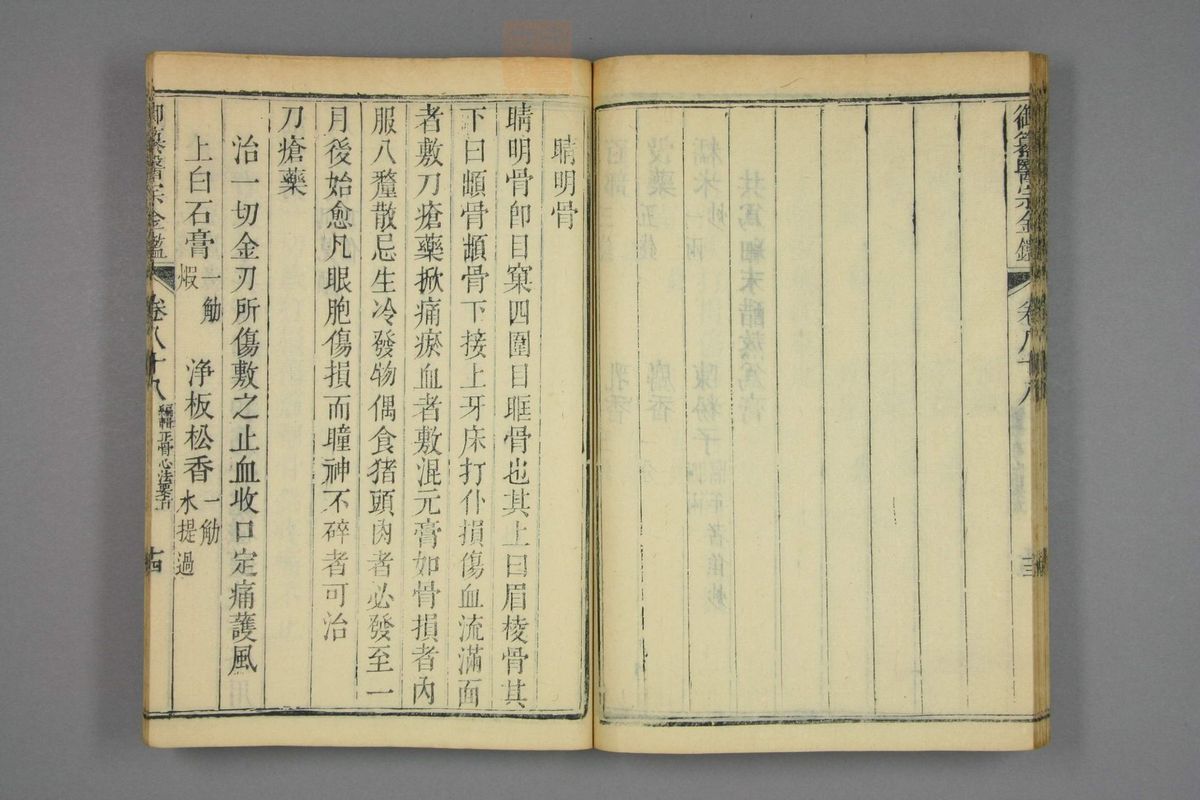 御纂醫宗金鑑
卷八十八
睛明骨
睛明骨即目窠四圍目眶骨也其上曰眉棱骨其
下曰䪼骨䪼骨下接上牙床打仆損傷血流滿面
者敷刀瘡藥掀痛瘀血者敷混元膏如骨損者內
服八釐散忌生冷發物偶食猪頭肉者必發至一
月後始愈凡眼胞傷損而瞳神不碎者可治
刀瘡藥
治一切金刃所傷敷之止血收口定痛護風
上白石膏一觔煅 淨板松香一觔水提過
御纂醫宗金鑑
卷八十八
編輯正骨心法要旨